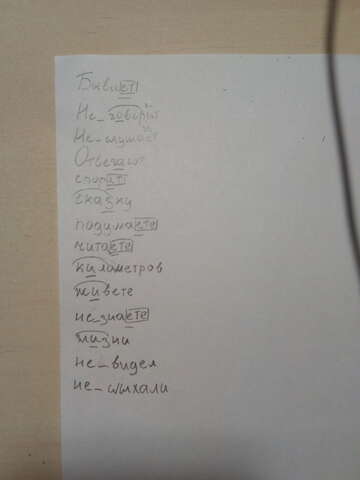 Бывает
Не_говорит
Не_слушает
Отвегают
спорит
сказку
подумаете
читаете
километров
живете
не_знаете
жизни
не_видел
не_слыхали